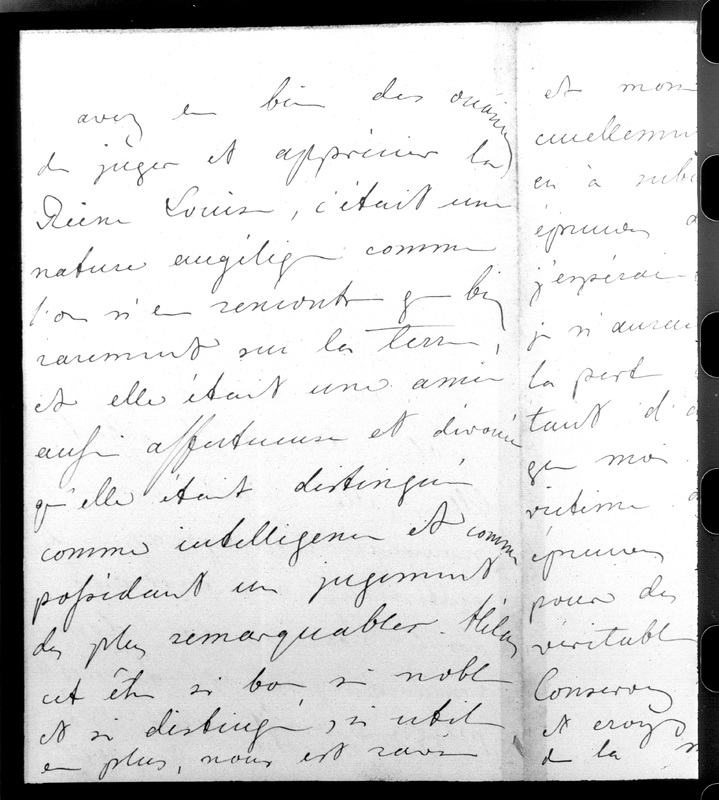 avez eu bien des occasions
de juger et apprécier la
Reine Louise, c'était une
nature angélique comme
l'on n'en rencontre que bien
rarement sur la terre,
et elle était une amie
aussi affectueuse et dévouée
qu'elle était distinguée
comme intelligence et comme
possédant un jugement
des plus remarquables. Hélas
cet être si bon si noble
et si distingué, si utile
en plus, nous est ravie
et mon
cruellement
eu à subi
épreuves
j'espérai
je n'aurai
la perte
tant d'a
que moi
victime
épreuves
pour des
véritabl
Conservez
et croyez
de la